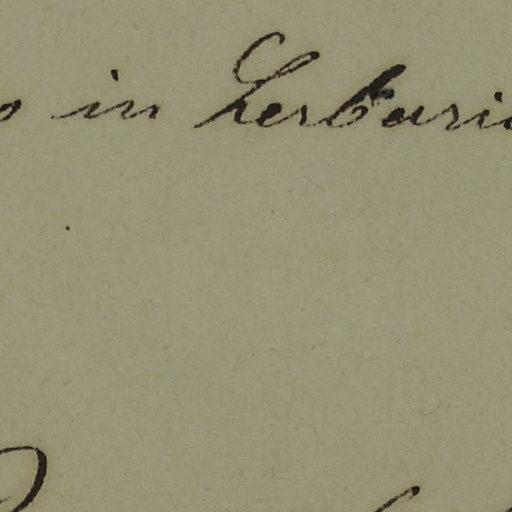 in Herbari